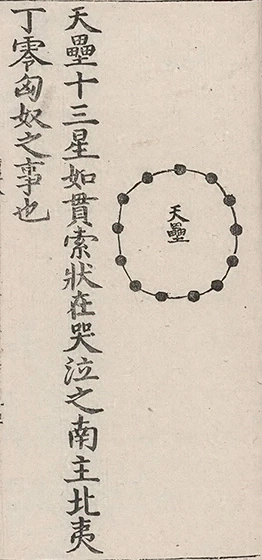 天壘
天壘十三星如貫索狀在哭泣之南主北夷
丁零匈奴之事也